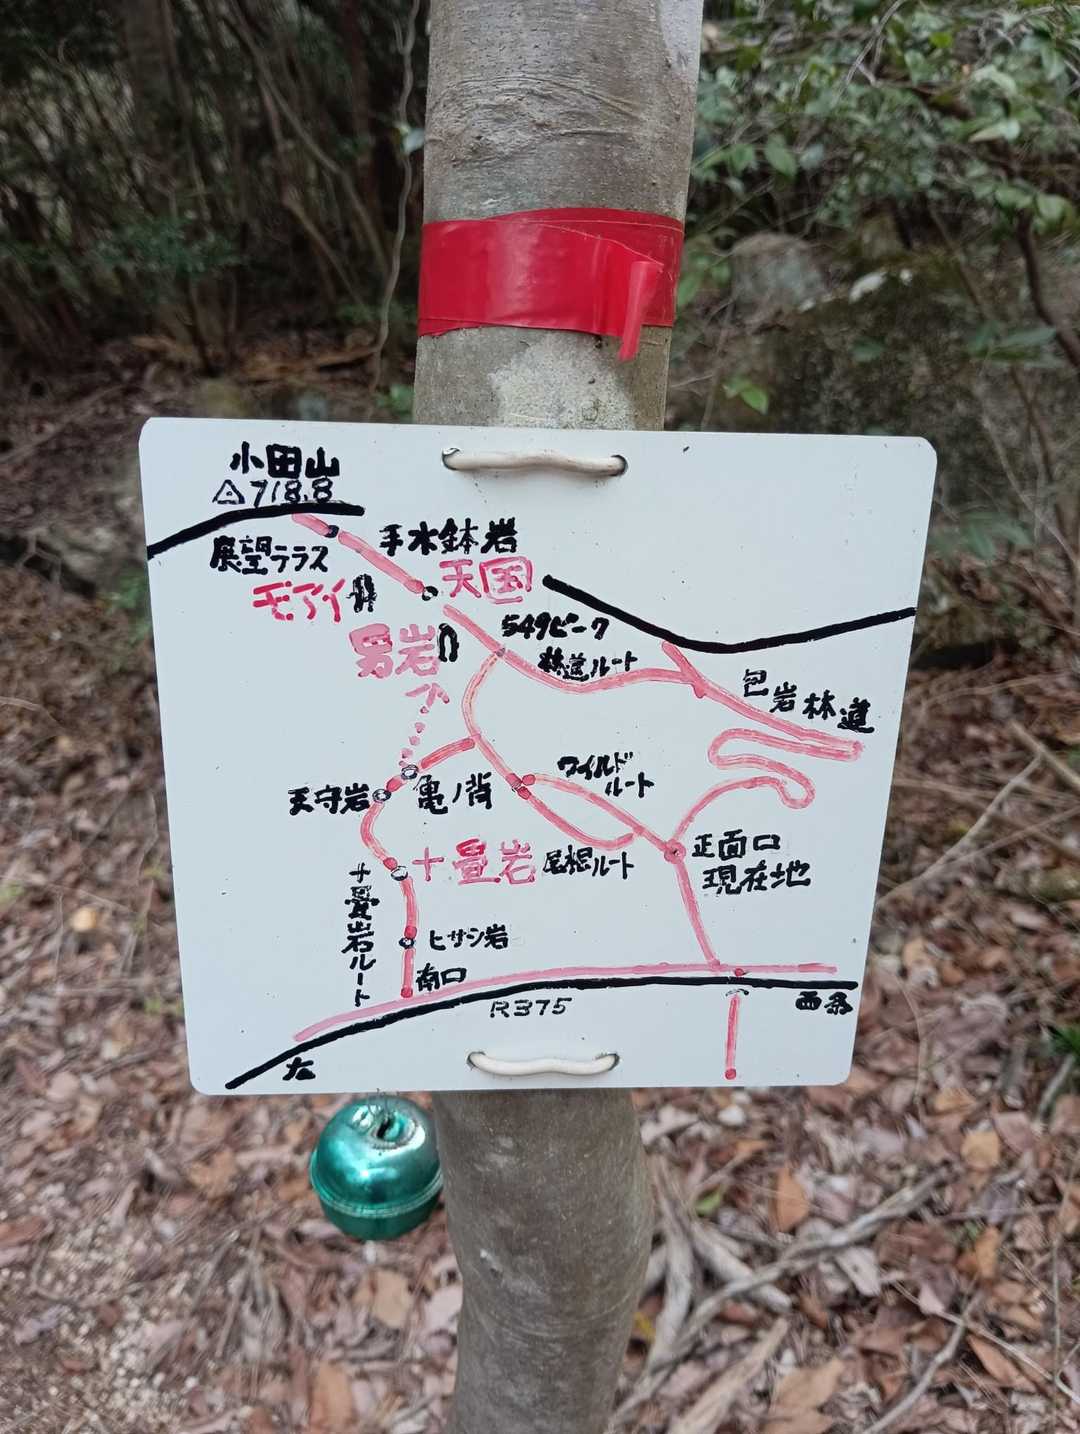 小田山
△718.8
展望テラス
手水鉢岩
モアイ
天国
男岩
549ピーク
林道ルート
包岩林道
ワイルド
ルート
天守岩
亀ノ背
十畳岩
尾根ルート
正面口
現在地
十畳岩ルート
ヒサシ岩
南口
R375
西条